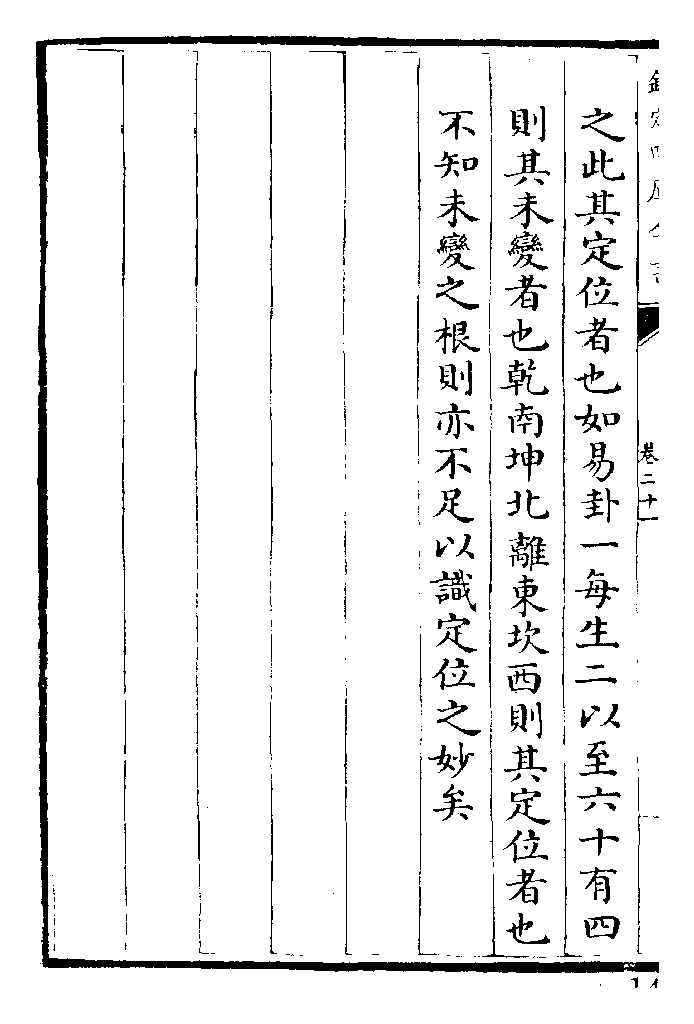 欽定四庫全書
卷二十一
之此其定位者也如易卦一每生二以至六十有四
則其未變者也乾南坤北離東坎西則其定位者也
不知未變之根則亦不足以識定位之妙矣